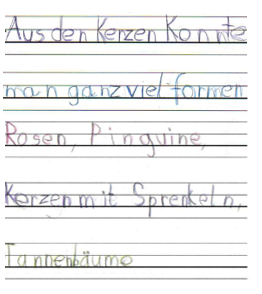 Aus den Kerzen Konnte
man ganz viel formen
Rosen, Pinguine,
Kerzen mit Sprenkeln,
Tannenbäume